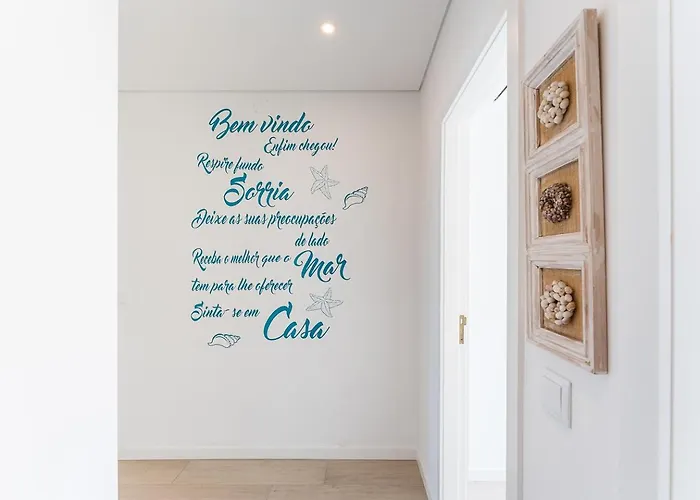 Bem vindo
Enfim chegou!
Respire fundo
Sorria
Deixe as suas preocupações
de lado
Receba o melhor que o
Mar
tem para lhe oferecer
Sinta-se em
Casa